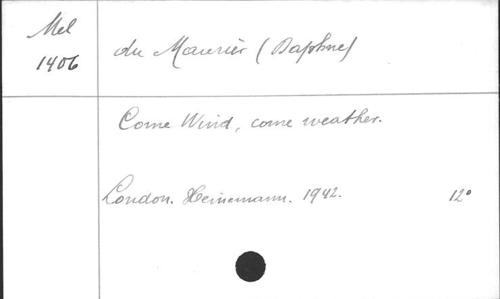 Mel
1406
du Maurier (Daphne)
Come Wind, come weather.
London. Heinemann. 1942. 12°